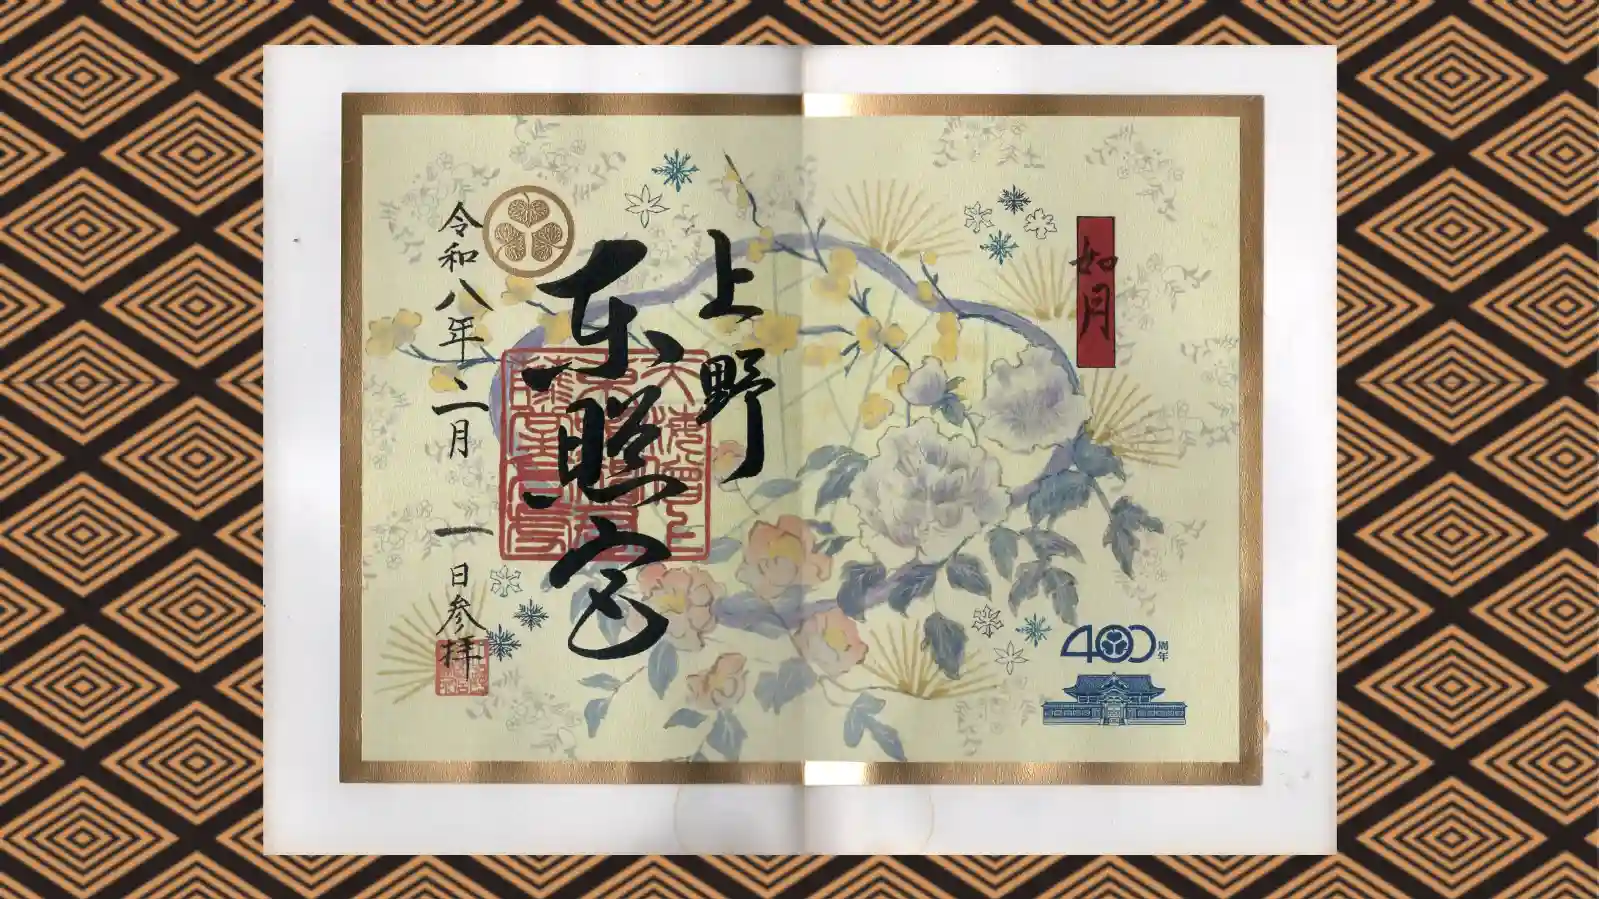 如月
上野
東照宮
令和八年二月一日参拝
400周年